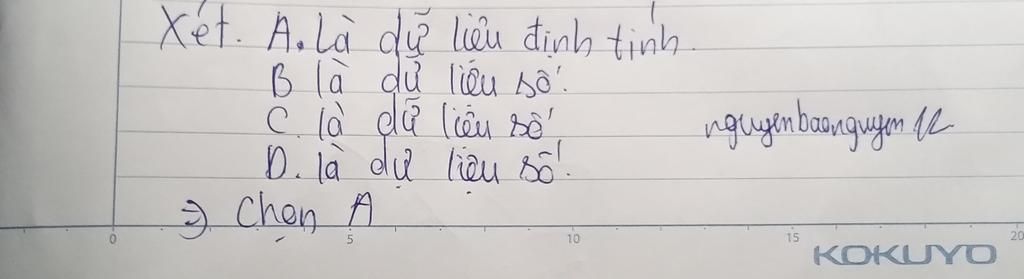 Xét. A. Là dữ liệu định tính.
B là dữ liệu số.
C. là dữ liệu số
nguyenbaonguyen12
D. là dữ liệu số.
=) Chọn A
0 5 10 15 20
KOKUYO